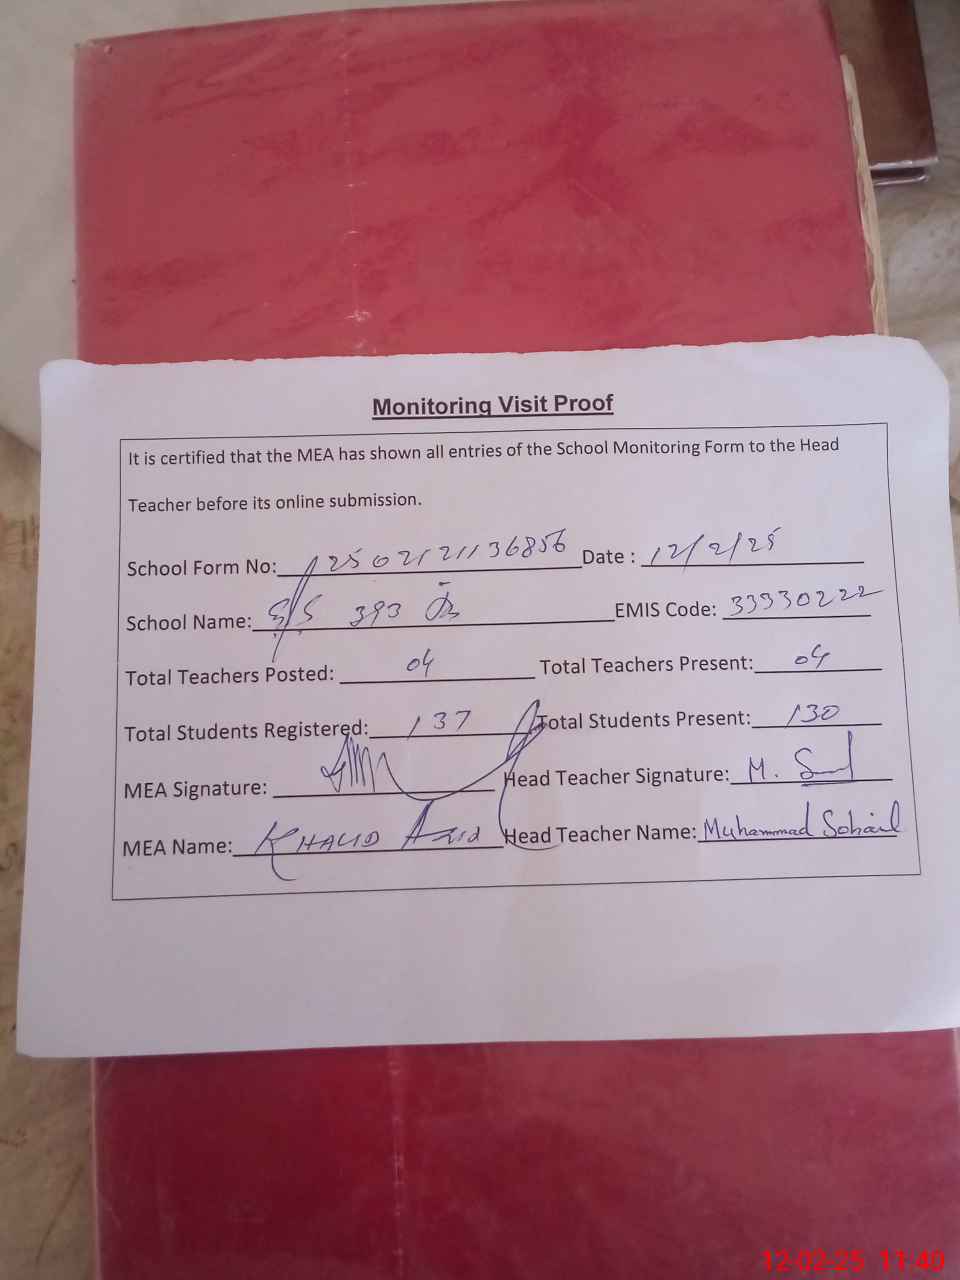 Monitoring Visit Proof
It is certified that the MEA has shown all entries of the School Monitoring Form to the Head
Teacher before its online submission.
School Form No: 12502121136856 Date : 12/2/25
School Name: 393 EMIS Code: 33330222
Total Teachers Posted: 04 Total Teachers Present: 04
Total Students Registered: 137 Total Students Present: 130
MEA Signature: Head Teacher Signature: M.
MEA Name: KHALID Head Teacher Name: Muhammad Sohail
12-02-25 11:40